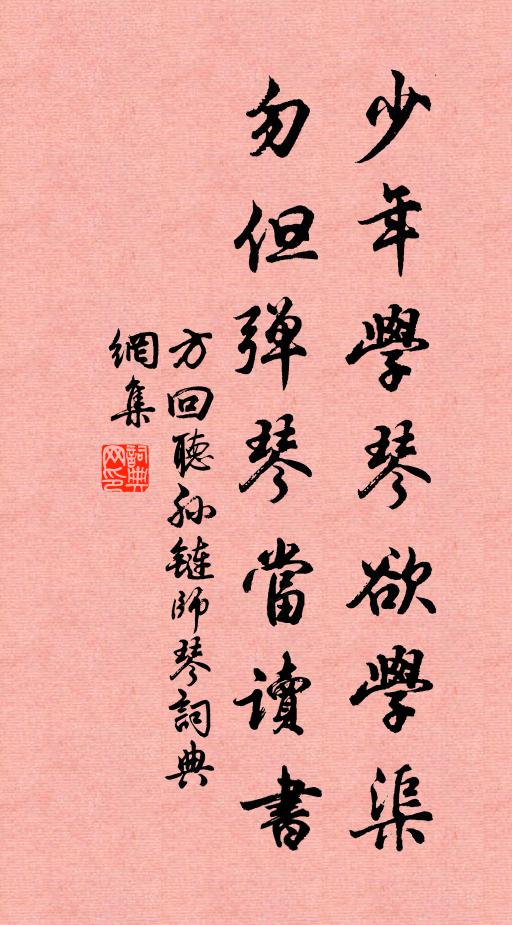 少年學琴欲學渠
勿但弹琴當讀書
方回聽孙鏈師琴詞典
網集
詞典网印